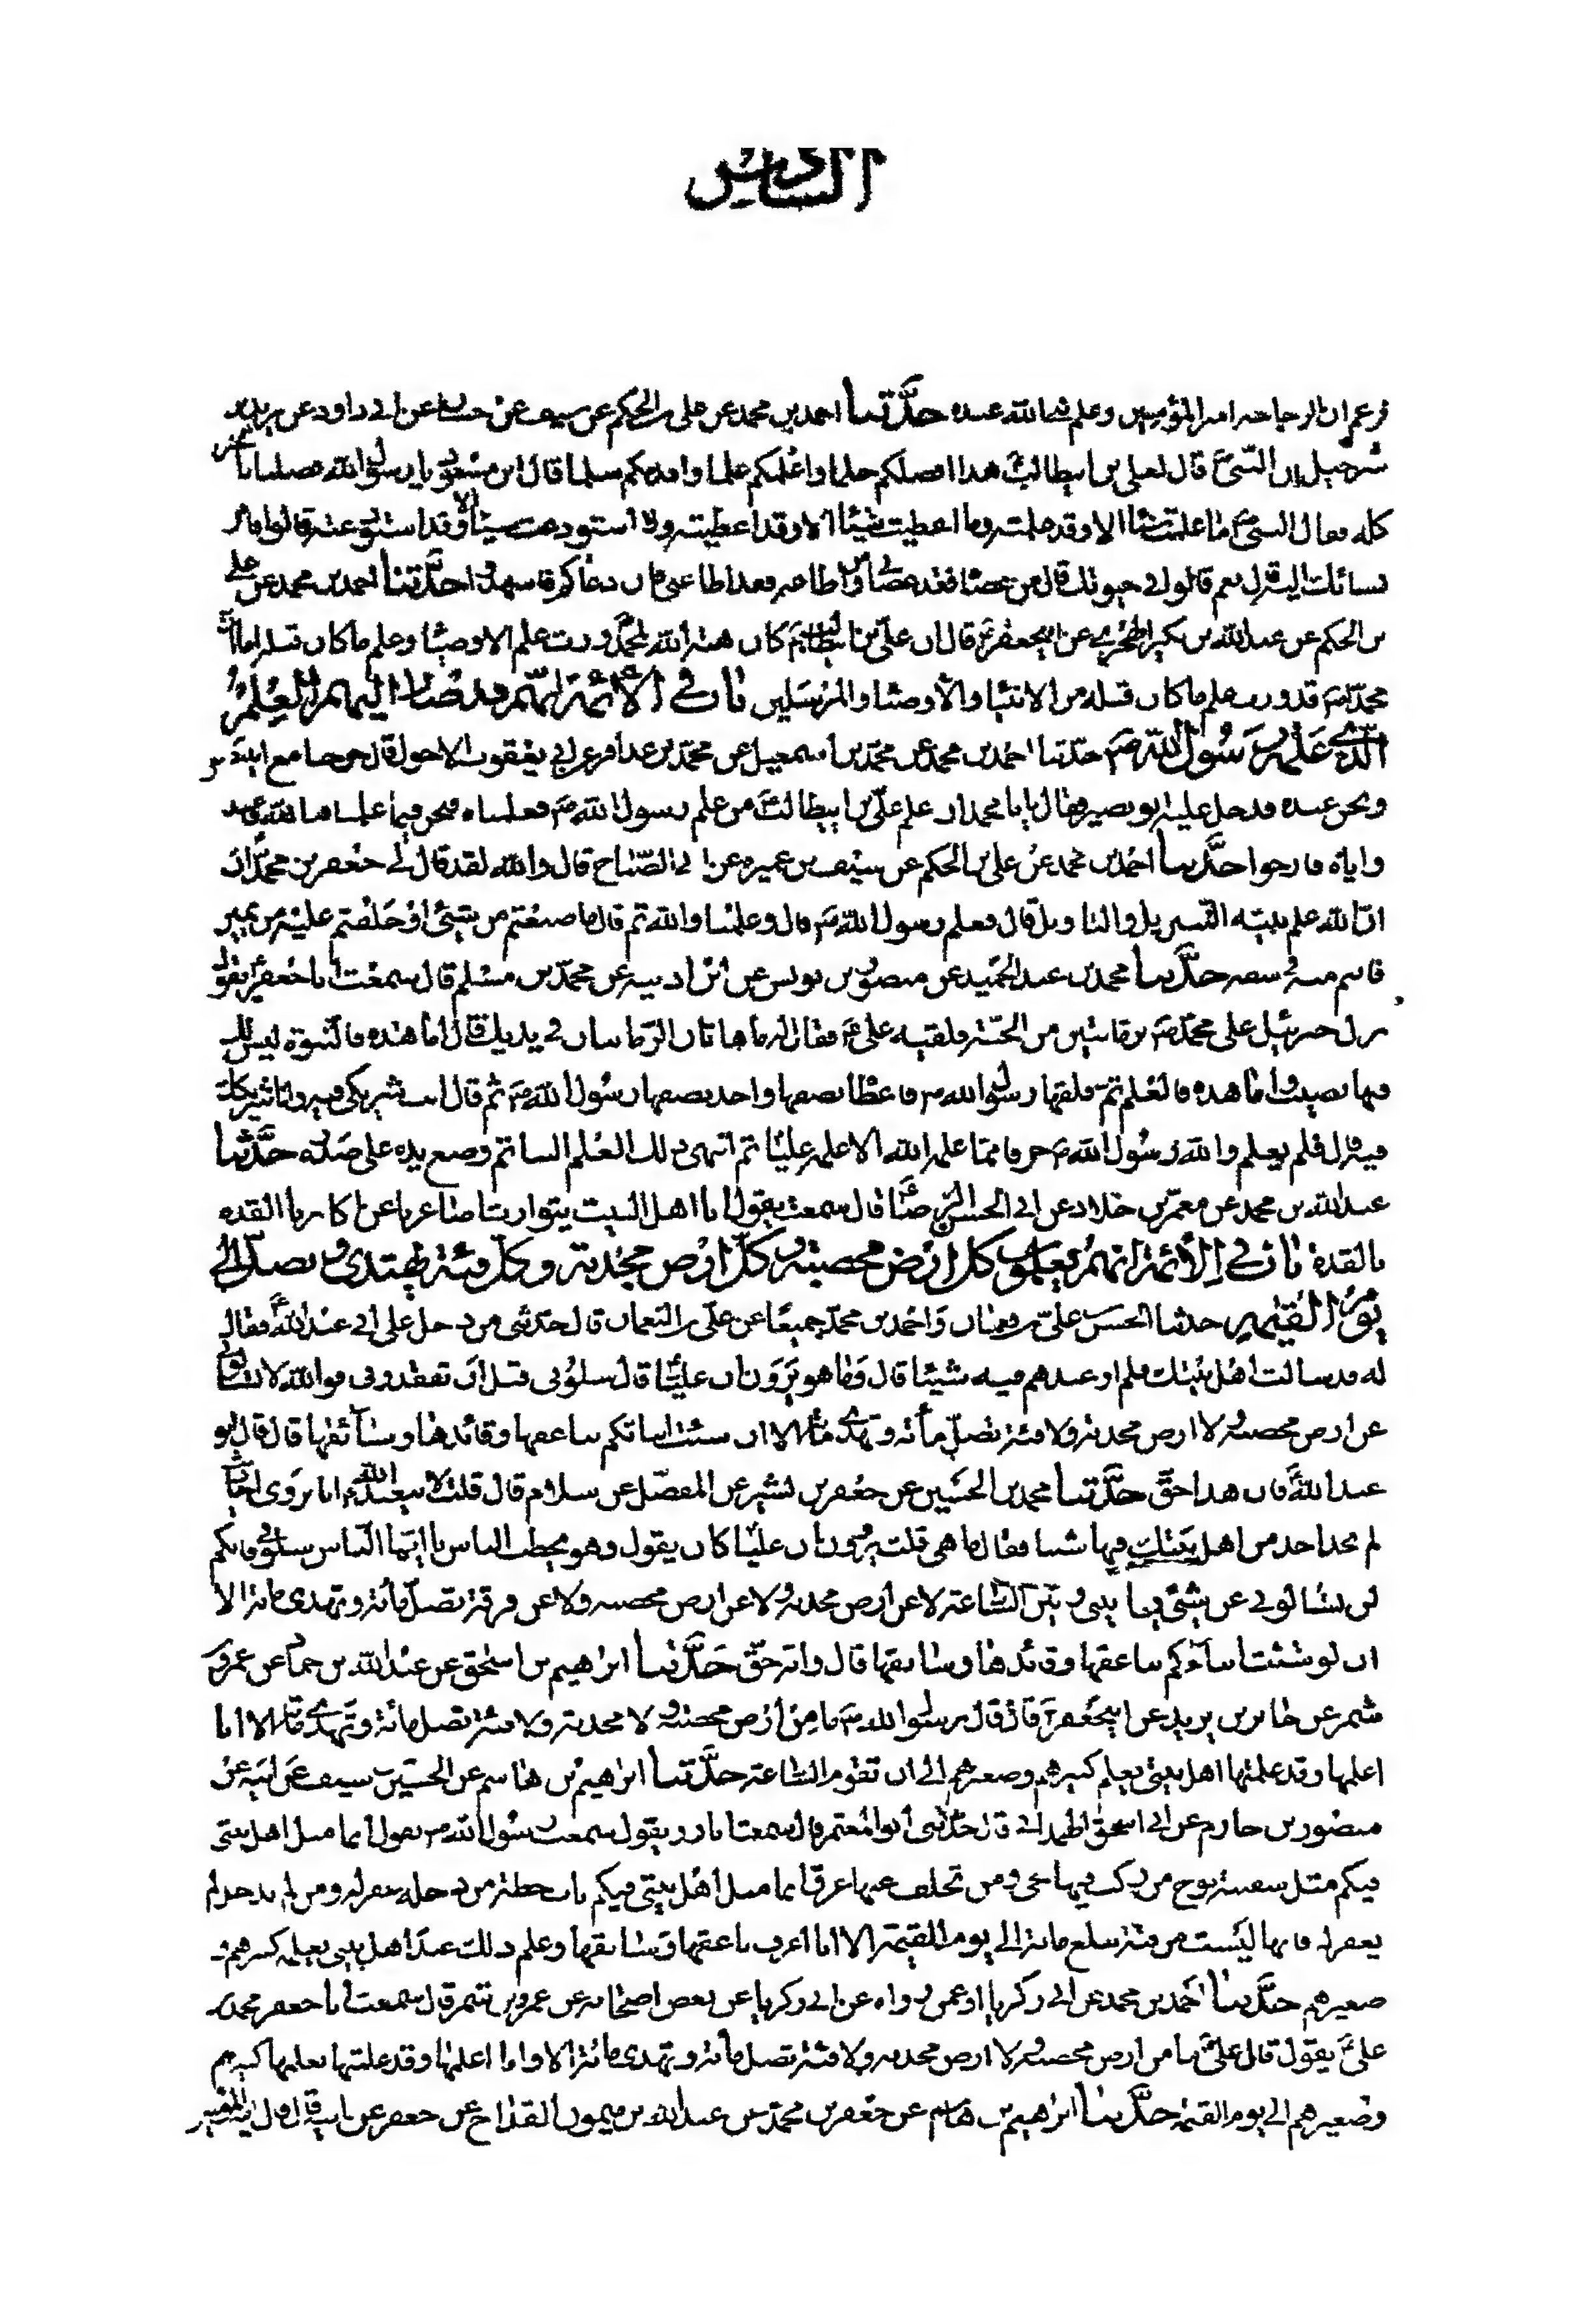 السادس
احمد بن محمد عن علی بن الحکم عن سیف عن عن ابی داود عن برید بن
شرحبیل ان النبی ص قال لعلی بن ابیطالب هذا افضلکم حلما واعلمکم علما واقدمکم سلما قال ابن مسعود یا رسول الله فضلنا بالخیر
کله فقال النبی ص ما علمت شیئا الا وقد علمته وما اعطیت شیئا الا وقد اعطیته ولا استودعت شیئا الا وقد استودعته قالوا فامر
نسائک الیه قال نعم قالوا فی حیوتک قال من عصاه فقد عصانی ومن اطاعه فقد اطاعنی فان دعاکم فاشهدوا حدثنا احمد بن محمد عن علی
بن الحکم عن عبد الله بن بکیر الهجری عن ابیجعفر ع قال ان علی بن ابیطالب ع کان هبة الله لمحمد ورث علم الاوصیا وعلم ما کان قبله اما ان
محمدا ص قد ورث علم ما کان قبله من الانبیا والاوصیا والمرسلین باب فی الائمة انهم قد صار الیهم العلم
الذی علم رسول الله ص حدثنا احمد بن محمد عن محمد بن اسمعیل عن محمد بن عذافر عن ابی یعقوب الاحول قال خرجنا مع ابی بصیر
ونحن عده فدخل علیه ابو بصیر فقال یابا محمد ان علم علی بن ابیطالب ع من علم رسول الله ص فعلمناه نحن فیما علمنا فالله فاعبد
وایاه فارجوا حدثنا احمد بن محمد عن علی بن الحکم عن سیف بن عمیره عن ابی الصباح قال والله لقد قال لی جعفر بن محمد ان
ان الله علم نبیه التنزیل والتاویل قال فعلم رسول الله ص قال وعلمنا والله ثم قال ما صنعتم من شیئ او حلفتم علیه من یمین
فانتم منه فی سعه حدثنا محمد بن عبد الحمید عن منصور بن یونس عن ابن اذینه عن محمد بن مسلم قال سمعت ابا جعفر ع یقول
نزل جبرئیل علی محمد ص برمانتین من الجنة فلقیه علی ع فقال له ما هاتان الرمانتان فی یدیک قال اما هذه فالنبوة لیس لک
فیها نصیب واما هذه فالعلم ثم فلقها رسول الله ص فاعطاه نصفها واخذ نصفها رسول الله ص ثم قال انت شریکی فیه وانا شریکک
فیه قال فلم یعلم والله رسول الله ص حرفا مما علمه الله الا علمه علیا ثم انتهی ذلک العلم الینا ثم وضع یده علی صدره حدثنا
عبد الله بن محمد عن معمر بن خلاد عن ابی الحسن الرضا ع قال سمعته یقول انا اهل البیت یتوارث اصاغرنا عن اکابرنا القذه
بالقذه باب فی الائمة انهم یعلمون کل ارض مخصبة وکل ارض مجدبة وکل فئة تهتدی وتضل الی
یوم القیمة حدثنا الحسن بن علی بن واحمد بن محمد جمیعا عن علی بن النعمان قال حدثنی من دخل علی ابی عبد الله ع فقال
له قد سالت اهل بیتک فلم اجد عندهم فیه شیئا قال وما هو یروون ان علیا قال سلونی قبل ان تفقدونی فوالله لا تسالونی
عن ارض مخصبة ولا ارض مجدبة ولا فئة تضل مأته وتهدی مأته الا ان شئت انباتکم بناعقها وقائدها وسائقها قال قال ابو
عبد الله ع فان هذا حق حدثنا محمد بن الحسین عن جعفر بن بشیر عن المفضل عن سلام قال قلت لابیعبد الله ع انا نروی احادیث
لم نجد احد من اهل بیتک فیها شیئا فقال ما هی قلت یروون ان علیا کان یقول وهو یخطب الناس یا ایها الناس سلونی فانکم
لن تسالونی عن شیئ فیما بینی وبین الساعة لا عن ارض مجدبة ولا عن ارض مخصبه ولا عن فرقة تضل مأئة وتهدی مائة الا
ان لو شئت انباتکم بناعقها وقائدها وسایقها قال وانه حق حدثنا ابراهیم بن اسحق عن عبد الله بن حماد عن عمرو بن
شمر عن جابر بن یزید عن ابیجعفر ع قال قال رسول الله ص ما من ارض مخصبة ولا مجدبة ولا فئة تضل مائة وتهدی مائة الا انا
اعلمها وقد علمتها اهل بیتی یعلم کبیرهم وصغیرهم الی ان تقوم الساعة حدثنا ابراهیم بن هاشم عن الحسین بن سیف عن ابیه عن
منصور بن حازم عن ابی اسحق الهمدانی قال حدثنی ابو المعتمر قال سمعت اباذر یقول سمعت رسول الله ص یقول انما مثل اهل بیتی
فیکم مثل سفینة نوح من رکب فیها نجی ومن تخلف عنها غرق انما مثل اهل بیتی فیکم باب حطة من دخله غفر له ومن لم یدخله لم
یغفر له فانها لیست من فئة تبلع مائة الی یوم القیمة الا انا اعرف ناعقها وسائقها وعلم ذلک عند اهل بیتی یعلمه کبیرهم و
صغیرهم حدثنا احمد بن محمد عن ابی زکریا او عمن رواه عن ابی زکریا عن بعض اصحابه عن عمرو بن شمر قال سمعت ابا جعفر محمد بن
علی ع یقول قال علی ع ما من ارض مخصبة ولا ارض مجدبه ولا فئة تضل مائة وتهدی مائة الا وانا اعلمها وقد علمتها یعلمها کبیرهم
وصغیرهم الی یوم القیمة حدثنا ابراهیم بن هاشم عن جعفر بن محمد عن عبد الله بن میمون القداح عن جعفر عن ابیه قال قال